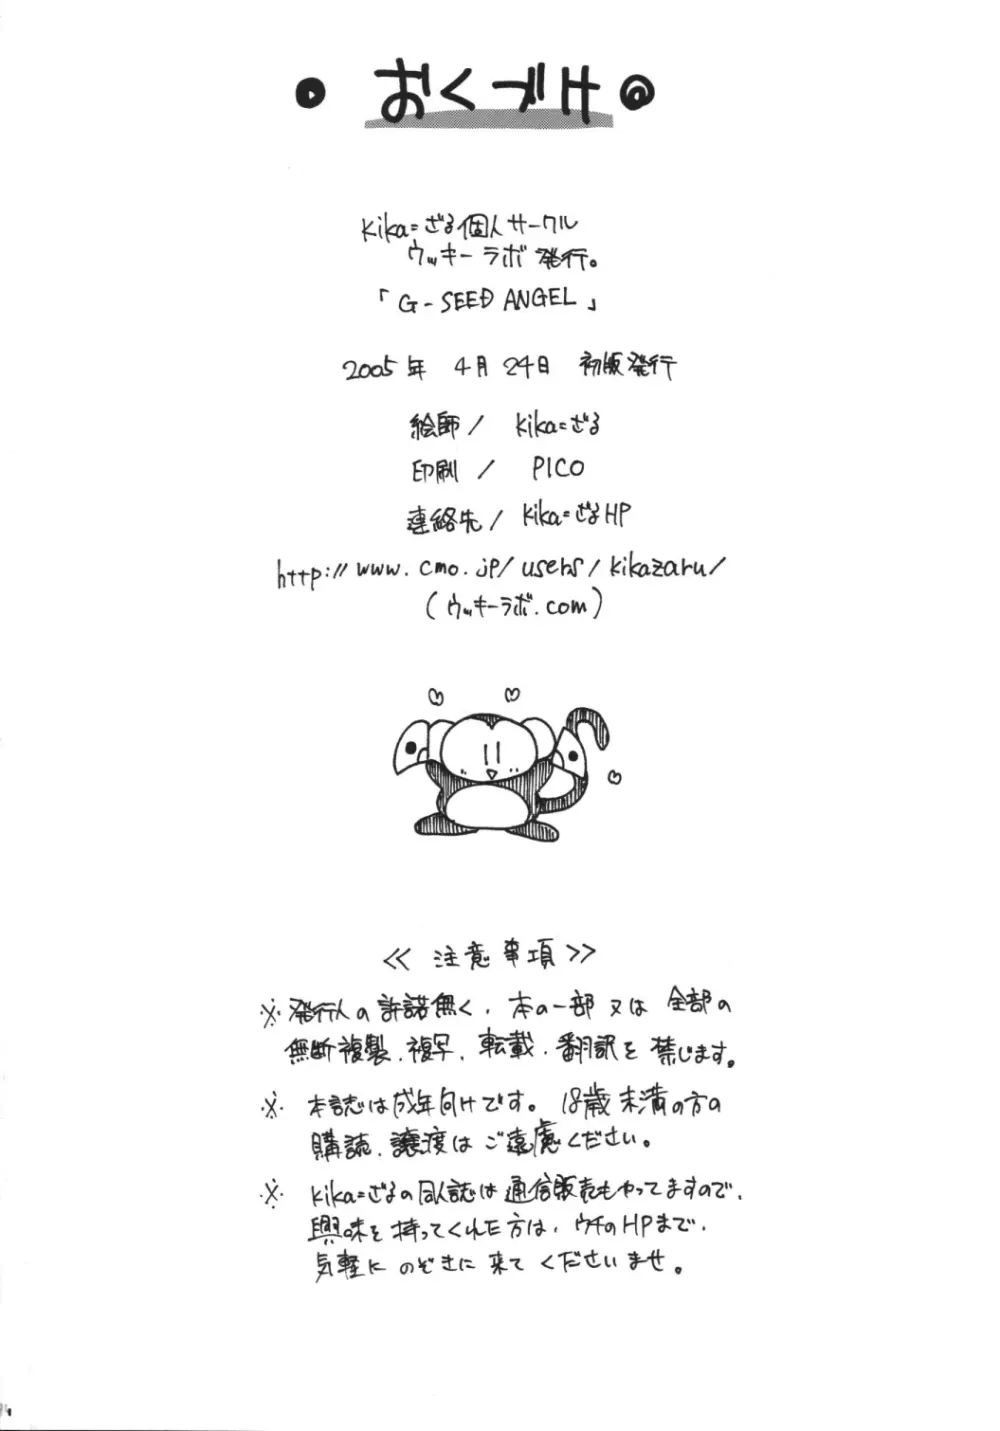 おくづけ
kika=ざる個人サークル
ウッキーラボ 発行。
「G-SEED ANGEL」
2005年 4月24日 初版発行
絵師/ kika=ざる
印刷/ PICO
連絡先/ kika=ざるHP
http://www.cmo.jp/users/kikazaru/
(ウッキーラボ.com)
≪ 注意事項 ≫
※発行人の許諾無く、本の一部又は全部の
無断複製、複写、転載、翻訳を禁じます。
※ 本誌は成年向けです。18歳未満の方の
購読、譲渡はご遠慮ください。
※ kika=ざるの同人誌は通信販売もやってますので、
興味を持ってくれた方は、ウチのHPまで、
気軽にのぞきに来てくださいませ。